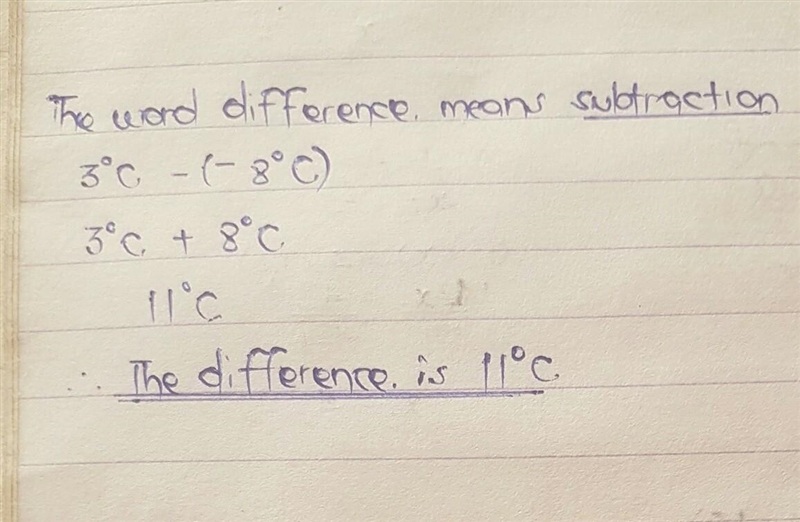 The word difference. means subtraction
3°C - (- 8°C)
3°C + 8°C
11°C
∴ The difference. is 11°C